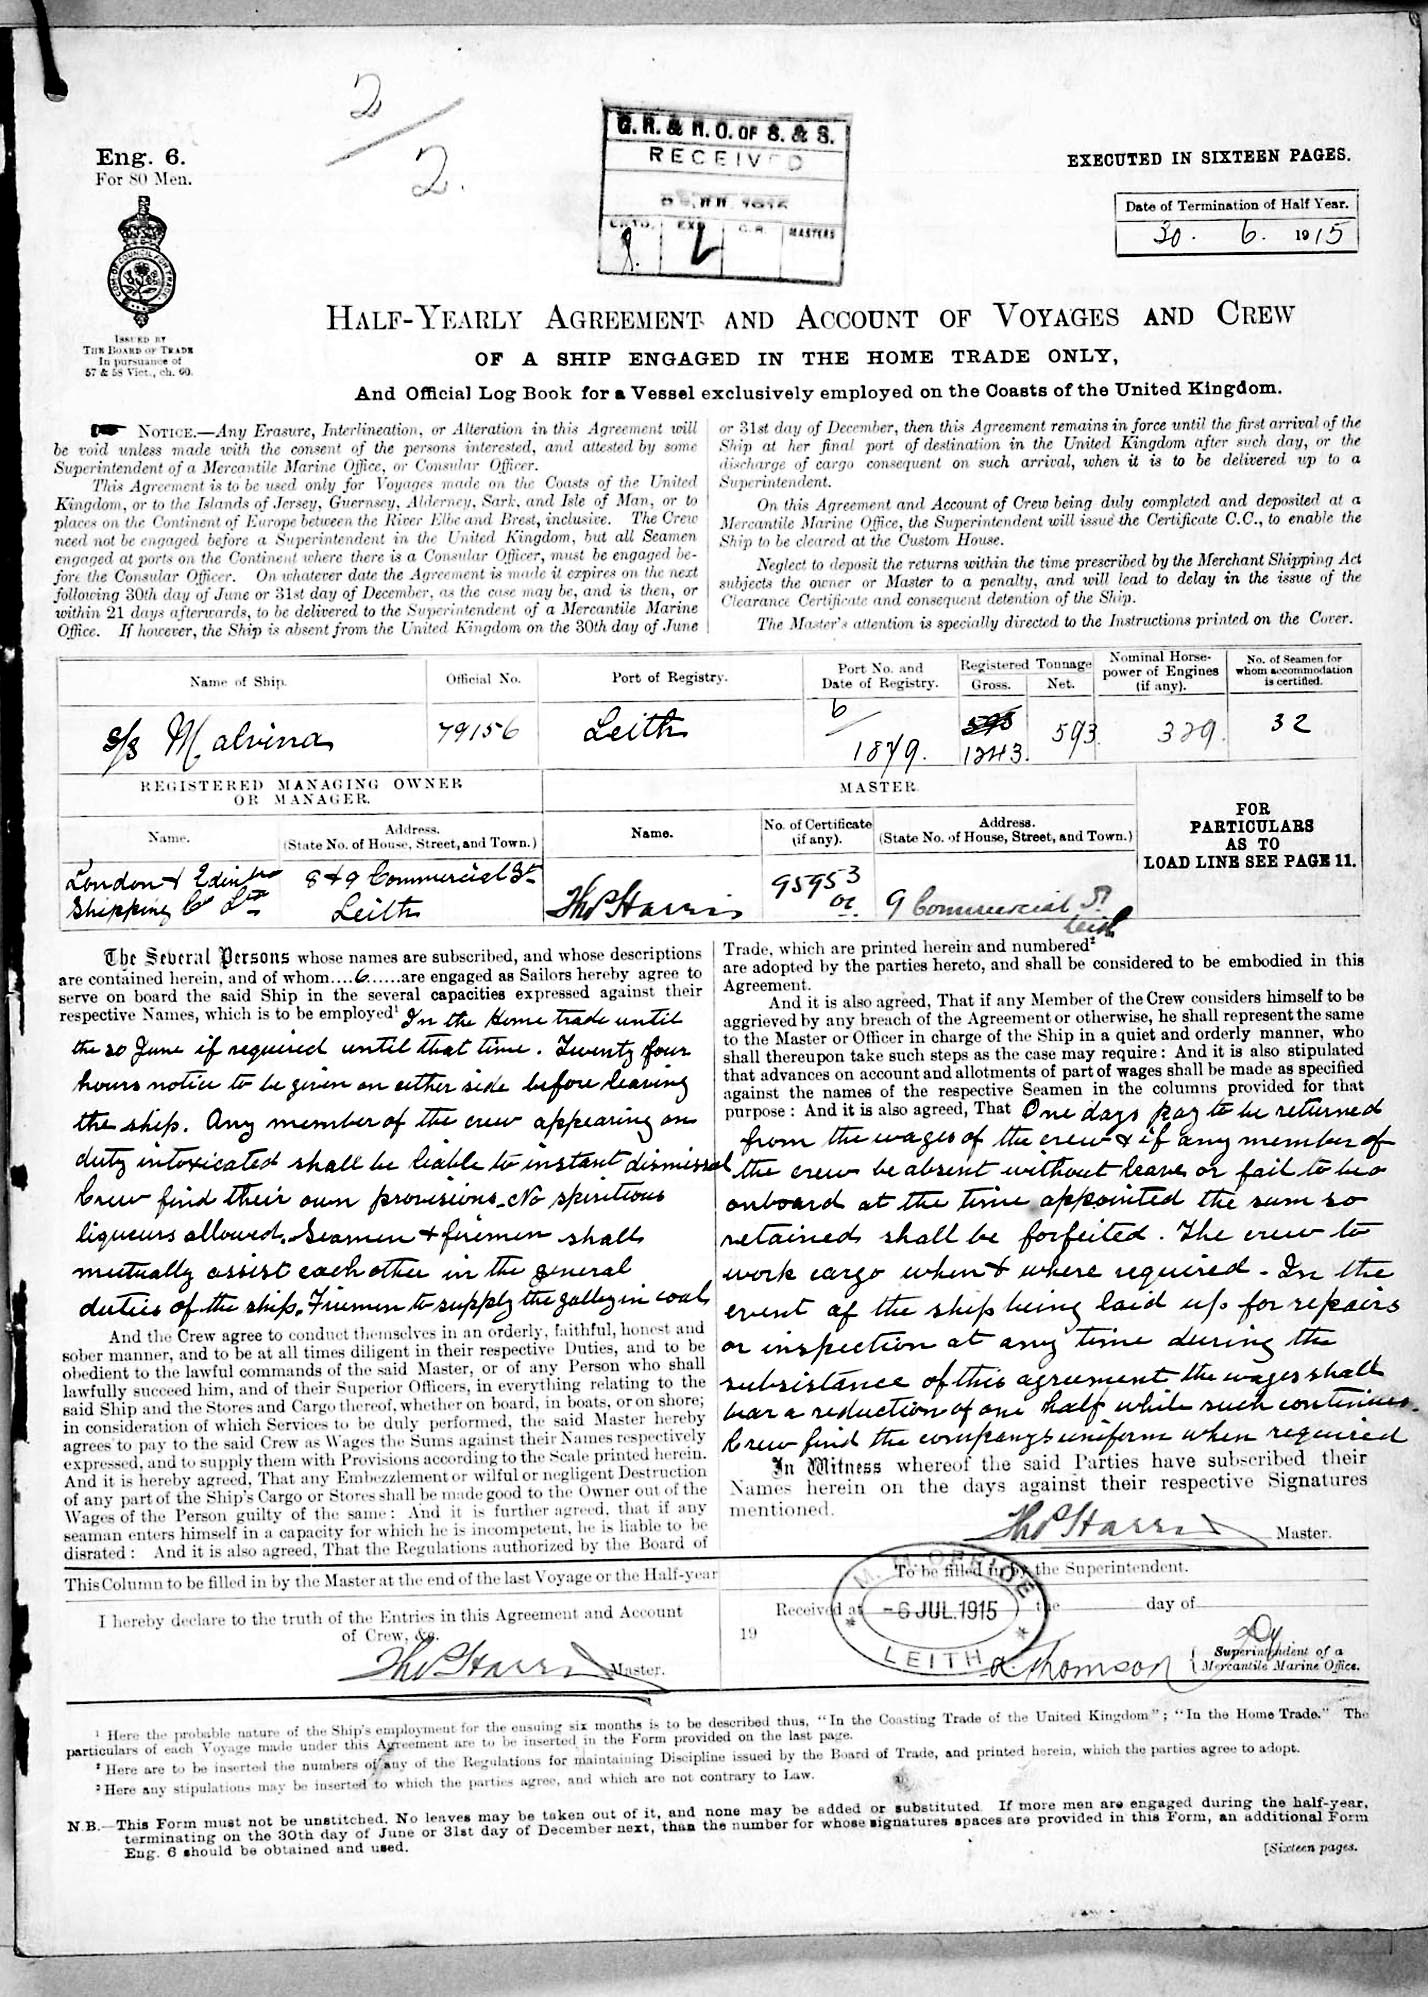 2/2.
Eng. 6.
For 80 Men.
ISSUED BY
THE BOARD OF TRADE
In pursuance of
57 & 58 Vict., ch. 60.
G. R. & R. O. OF S. & S.
RECEIVED
MASTERS
EXECUTED IN SIXTEEN PAGES.
Date of Termination of Half Year.
30. 6. 1915
HALF-YEARLY AGREEMENT AND ACCOUNT OF VOYAGES AND CREW
OF A SHIP ENGAGED IN THE HOME TRADE ONLY,
And Official Log Book for a Vessel exclusively employed on the Coasts of the United Kingdom.
NOTICE.—Any Erasure, Interlineation, or Alteration in this Agreement will
be void unless made with the consent of the persons interested, and attested by some
Superintendent of a Mercantile Marine Office, or Consular Officer.
This Agreement is to be used only for Voyages made on the Coasts of the United
Kingdom, or to the Islands of Jersey, Guernsey, Alderney, Sark, and Isle of Man, or to
places on the Continent of Europe between the River Elbe and Brest, inclusive. The Crew
need not be engaged before a Superintendent in the United Kingdom, but all Seamen
engaged at ports on the Continent where there is a Consular Officer, must be engaged be-
fore the Consular Officer. On whatever date the Agreement is made it expires on the next
following 30th day of June or 31st day of December, as the case may be, and is then, or
within 21 days afterwards, to be delivered to the Superintendent of a Mercantile Marine
Office. If however, the Ship is absent from the United Kingdom on the 30th day of June
or 31st day of December, then this Agreement remains in force until the first arrival of the
Ship at her final port of destination in the United Kingdom after such day, or the
discharge of cargo consequent on such arrival, when it is to be delivered up to a
Superintendent.
On this Agreement and Account of Crew being duly completed and deposited at a
Mercantile Marine Office, the Superintendent will issue the Certificate C.C., to enable the
Ship to be cleared at the Custom House.
Neglect to deposit the returns within the time prescribed by the Merchant Shipping Act
subjects the owner or Master to a penalty, and will lead to delay in the issue of the
Clearance Certificate and consequent detention of the Ship.
The Master's attention is specially directed to the Instructions printed on the Cover.
Name of Ship.
Official No.
Port of Registry.
Port No. and
Date of Registry.
Registered Tonnage
Gross. Net.
Nominal Horse-
power of Engines
(if any).
No. of Seamen for
whom accommodation
is certified.
s/s Malvina
79156
Leith
6/1879.
593
1243.
593.
329.
32
REGISTERED MANAGING OWNER
OR MANAGER.
MASTER.
Name.
Address.
(State No. of House, Street, and Town.)
Name.
No. of Certificate
(if any).
Address.
(State No. of House, Street, and Town.)
FOR
PARTICULARS
AS TO
LOAD LINE SEE PAGE 11.
London & Edinbro
Shipping Co Ltd
8 & 9 Commercial St
Leith
Thos Harris
95953
9 Commercial St
Leith
The Several Persons whose names are subscribed, and whose descriptions
are contained herein, and of whom....6......are engaged as Sailors hereby agree to
serve on board the said Ship in the several capacities expressed against their
respective Names, which is to be employed¹ In the Home trade until
the 30 June if required until that time. Twenty four
hours notice to be given on either side before leaving
the ship. Any member of the crew appearing on
duty intoxicated shall be liable to instant dismissal
Crew find their own provisions. No spiritious
liqueurs allowed. Seamen & firemen shall
mutually assist each other in the general
duties of the ship. Firemen to supply the galley in coal
And the Crew agree to conduct themselves in an orderly, faithful, honest and
sober manner, and to be at all times diligent in their respective Duties, and to be
obedient to the lawful commands of the said Master, or of any Person who shall
lawfully succeed him, and of their Superior Officers, in everything relating to the
said Ship and the Stores and Cargo thereof, whether on board, in boats, or on shore;
in consideration of which Services to be duly performed, the said Master hereby
agrees to pay to the said Crew as Wages the Sums against their Names respectively
expressed, and to supply them with Provisions according to the Scale printed herein.
And it is hereby agreed, That any Embezzlement or wilful or negligent Destruction
of any part of the Ship's Cargo or Stores shall be made good to the Owner out of the
Wages of the Person guilty of the same: And it is further agreed, that if any
seaman enters himself in a capacity for which he is incompetent, he is liable to be
disrated: And it is also agreed, That the Regulations authorized by the Board of
Trade, which are printed herein and numbered²
are adopted by the parties hereto, and shall be considered to be embodied in this
Agreement.
And it is also agreed, That if any Member of the Crew considers himself to be
aggrieved by any breach of the Agreement or otherwise, he shall represent the same
to the Master or Officer in charge of the Ship in a quiet and orderly manner, who
shall thereupon take such steps as the case may require: And it is also stipulated
that advances on account and allotments of part of wages shall be made as specified
against the names of the respective Seamen in the columns provided for that
purpose: And it is also agreed, That One days pay to be returned
from the wages of the crew & if any member of
the crew be absent without leave or fail to be
onboard at the time appointed the sum so
retained shall be forfeited. The crew to
work cargo when & where required - In the
event of the ship being laid up for repairs
or inspection at any time during the
subsistance of this agreement the wages shall
bear a reduction of one half while such continues.
Crew find the companys uniform when required
In Witness whereof the said Parties have subscribed their
Names herein on the days against their respective Signatures
mentioned.
Thos Harris Master.
This Column to be filled in by the Master at the end of the last Voyage or the Half-year
I hereby declare to the truth of the Entries in this Agreement and Account
of Crew, &c.
Thos Harris Master.
To be filled in by the Superintendent.
Received at the day of
19
M. M. OFFICE
-6 JUL. 1915
LEITH
A Thomson
Dy
Superintendent of a
Mercantile Marine Office.
¹ Here the probable nature of the Ship's employment for the ensuing six months is to be described thus, "In the Coasting Trade of the United Kingdom"; "In the Home Trade." The
particulars of each Voyage made under this Agreement are to be inserted in the Form provided on the last page.
² Here are to be inserted the numbers of any of the Regulations for maintaining Discipline issued by the Board of Trade, and printed herein, which the parties agree to adopt.
³ Here any stipulations may be inserted to which the parties agree, and which are not contrary to Law.
N.B.—This Form must not be unstitched. No leaves may be taken out of it, and none may be added or substituted. If more men are engaged during the half-year,
terminating on the 30th day of June or 31st day of December next, than the number for whose signatures spaces are provided in this Form, an additional Form
Eng. 6 should be obtained and used.
[Sixteen pages.